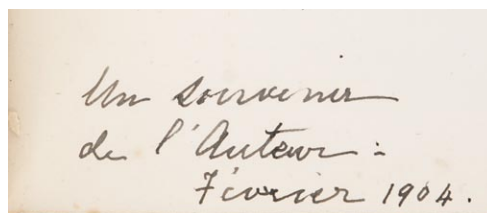 Un souvenir
de l'Auteur :
Février 1904.